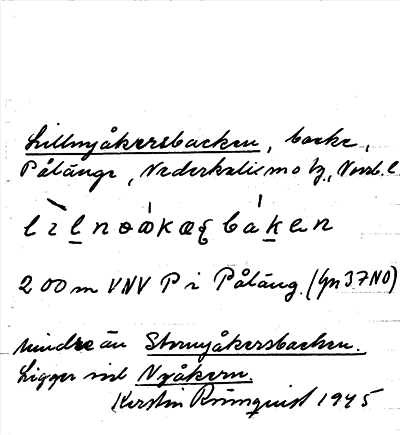 Lillnyåkersbacken, backe,
Pålänge, Nederkalix sn o tg, Norrb. l.
200 m VNV P i Påläng. (Gn 37NO)
Mindre än Stornyåkersbacken.
Ligger vid Nyåkern.
Kerstin Rönnquist 1945